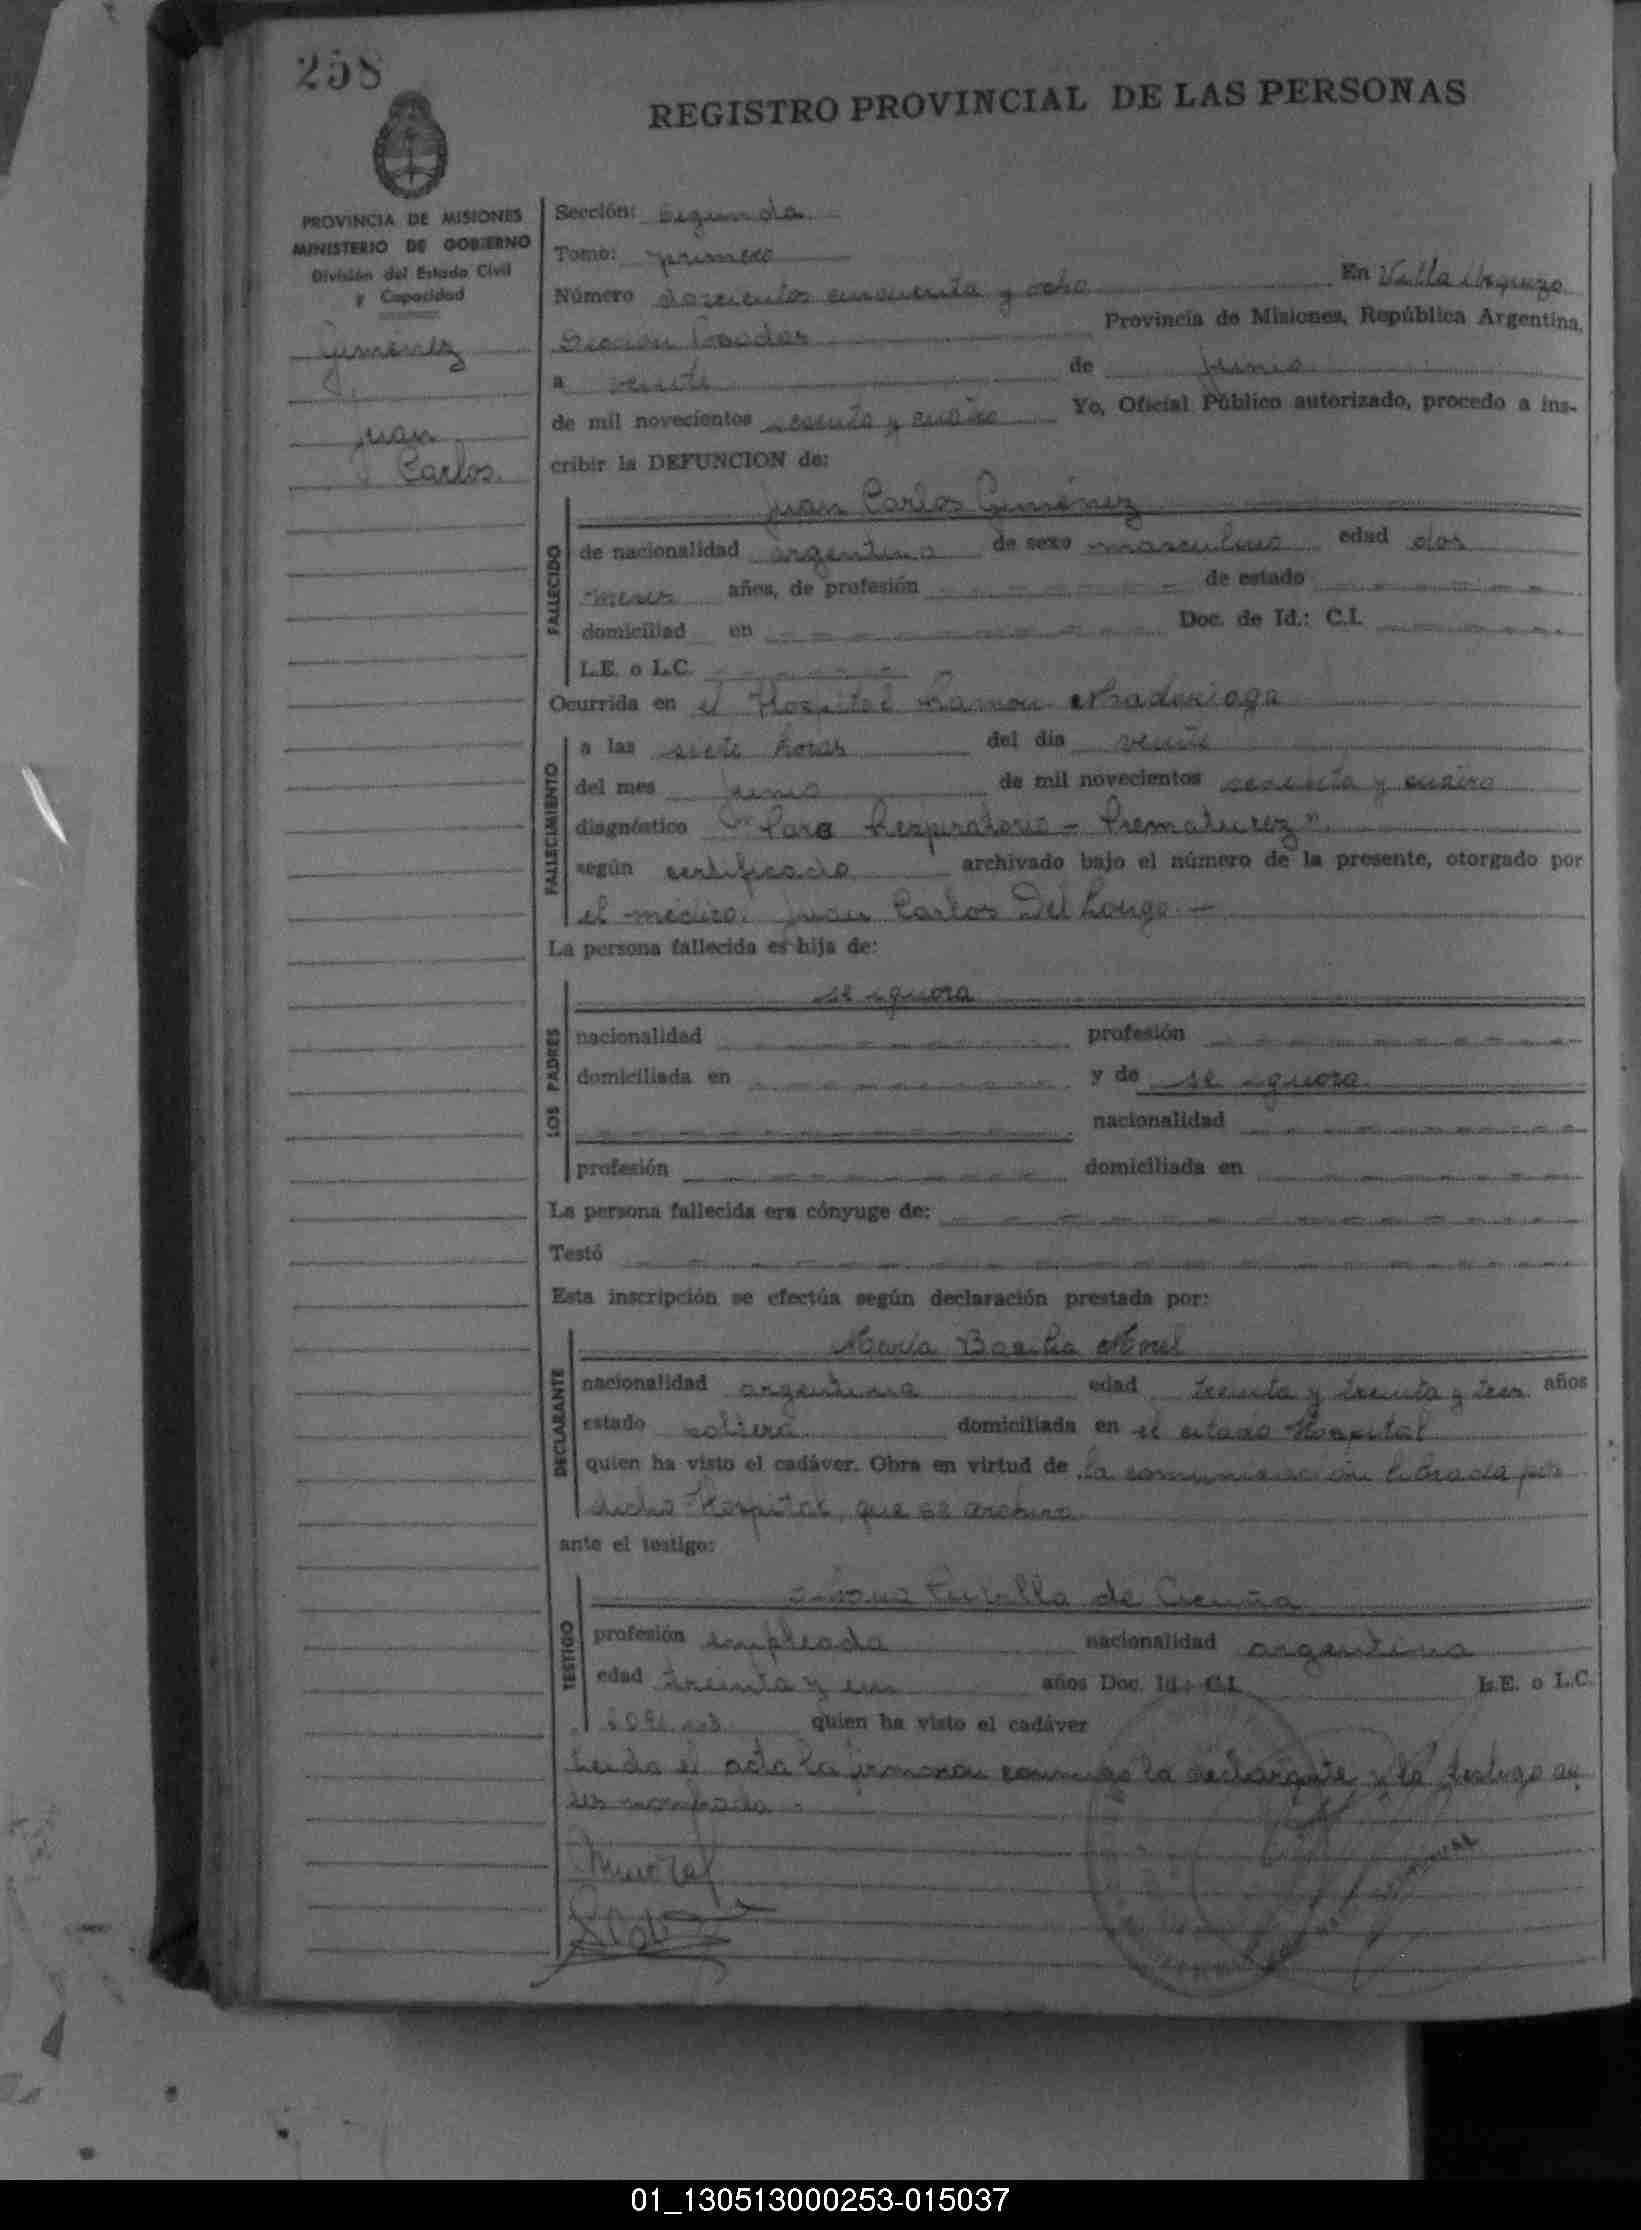 258
REGISTRO PROVINCIAL DE LAS PERSONAS
PROVINCIA DE MISIONES
MINISTERIO DE GOBIERNO
División del Estado Civil
y Capacidad
Gimenez
Juan
Carlos.
Sección: Segunda
Tomo: primero
Número doscientos cincuenta y ocho En Villa Urquiza
Sección Posadas Provincia de Misiones, República Argentina,
a veinte de junio
de mil novecientos setenta y cuatro Yo, Oficial Público autorizado, procedo a ins-
cribir la DEFUNCION de:
Juan Carlos Gimenez
FALLECIDO
de nacionalidad argentino de sexo masculino edad dos
meses años, de profesión de estado
domiciliad en Doc. de Id.: C.I.
L.E. o L.C.
Ocurrida en el Hospital Ramon Madariaga
FALLECIMIENTO
a las siete horas del día veinte
del mes junio de mil novecientos setenta y cuatro
diagnóstico "Paro Respiratorio - Prematurez"
según certificado archivado bajo el número de la presente, otorgado por
el médico: Juan Carlos Del Longo. -
La persona fallecida es hija de:
LOS PADRES
se ignora
nacionalidad profesión
domiciliada en y de se ignora
nacionalidad
profesión domiciliada en
La persona fallecida era cónyuge de:
Testó
Esta inscripción se efectúa según declaración prestada por:
DECLARANTE
María Basilia Morel
nacionalidad argentina edad treinta y treinta y tres años
estado soltera domiciliada en el citado Hospital
quien ha visto el cadáver. Obra en virtud de la comunicación librada por
dicho Hospital, que se archiva.
ante el testigo:
TESTIGO
de Acuña
profesión empleada nacionalidad argentina
edad treinta y un años Doc. Id.: C.I. L.E. o L.C.
quien ha visto el cadáver
Leida el acta la firmaron conmigo la declarante y la testigo an
tes nombrada -
01_130513000253-015037